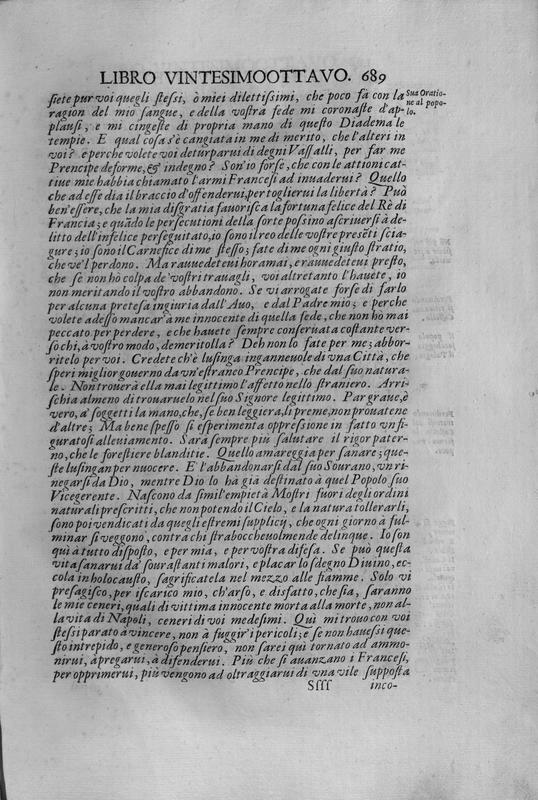 LIBRO VINTESIMOOTTAVO. 689
ſiete pur voi quegli ſteſsi, ò miei dilettiſsimi, che poco fà con la
ragion del mio ſangue, e della voſtra fede mi coronaſte d'ap-
plauſi, e mi cingeſte di propria mano di queſto Diadema le
tempie. E qual coſa s'è cangiata in me di merito, che l'alteri in
voi? e perche volete voi deturparui di degni Vaſſalli, per far me
Prencipe deforme, & indegno? Son'io forſe, che con le attioni cat-
tiue mie habbia chiamato l'armi Franceſi ad inuaderui? Quello
che ad eſſe dia il braccio d'offenderui, per toglierui la libertà? Può
ben'eſſere, che la mia diſgratia fauoriſca la fortuna felice del Rè di
Francia; e quãdo le perſecutioni della ſorte poſsino aſcriuerſi à de-
litto dell'infelice perſeguitato, io ſono il reo delle voſtre preſẽti ſcia-
gure; io ſono il Carnefice di me ſteſſo; fate di me ogni giuſto ſtratio,
che ve'l perdono. Ma rauuedeteui horamai, e rauuedeteui preſto,
che ſe non hò colpa de' voſtri trauagli, voi altretanto l'hauete, io
non meritando il voſtro abbandono. Se vi arrogate forſe di farlo
per alcuna preteſa ingiuria dall'Auo, e dal Padre mio; e perche
volete adeſſo mancar'a me innocente di quella fede, che non hò mai
peccato per perdere, e che hauete ſempre conſeruata coſtante ver-
ſo chi, à voſtro modo, demeritolla? Deh non lo fate per me; abbor-
ritelo per voi. Credete ch'è luſinga ingannεuole di vna Città, che
ſperi miglior gouerno da vn'eſtraneo Prencipe, che dal ſuo natura-
le. Non trouerà ella mai legittimo l'affetto nello ſtraniero. Arri-
ſchia almeno di trouaruelo nel ſuo Signore legittimo. Par graue, è
vero, a' ſoggetti la mano, che, ſe ben leggiera, li preme, non prouatene
d'altre; Ma bene ſpeſſo ſi eſperimenta oppreſsione in fatto vn fi-
guratoſi alleuiamento. Sarà ſempre più ſalutare il rigor pater-
no, che le foreſtiere blanditie. Quello amareggia per ſanare; que-
ſte luſingan per nuocere. E l'abbandonarſi dal ſuo Sourano, vn ri-
negarſi da Dio, mentre Dio lo hà già deſtinato à quel Popolo ſuo
Vicegerente. Naſcono da ſimil'empietà Moſtri fuori degli ordini
naturali preſcritti, che non potendo il Cielo, e la natura tollerarli,
ſono poi vendicati da quegli eſtremi ſupplicij, che ogni giorno à ful-
minar ſi veggono, contra chi ſtraboccheuolmente delinque. Io ſon
quì à tutto diſpoſto, e per mia, e per voſtra difeſa. Se può queſta
vita ſanarui da' ſouraſtanti malori, e placar lo ſdegno Diuino, ec-
cola in holocauſto, ſagrificatela nel mezzo alle fiamme. Solo vi
preſagiſco, per iſcarico mio, ch'arſo, e disfatto, che ſia, ſaranno
le mie ceneri, quali di vittima innocente morta alla morte, non al-
la vita di Napoli, ceneri di voi medeſimi. Quì mi trouo con voi
ſteſsi parato à vincere, non à fuggir'i pericoli; e ſe non haueſsi que-
ſto intrepido, e generoſo penſiero, non ſarei quì tornato ad ammo-
nirui, à pregarui, à difenderui. Più che ſi auanzano i Franceſi,
per opprimerui, più vengono ad oltraggiarui di vna vile ſuppoſta
Sſſſ inco-
Sua Oratio-
ne al popo-
lo.